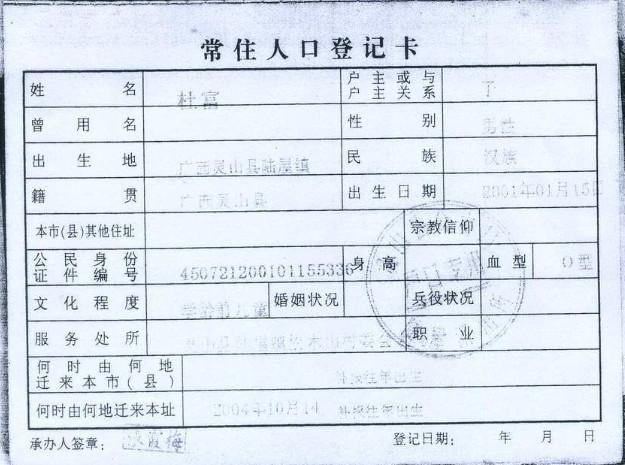 常住人口登记卡
姓名 杜富 户主或与户主关系 子
曾用名 性别 男性
出生地 广西灵山县陆屋镇 民族 汉族
籍贯 广西灵山县 出生日期 2001年01月15日
本市(县)其他住址 宗教信仰
公民身份证件编号 450721200101155336 身高 血型 O型
文化程度 学龄前儿童 婚姻状况 兵役状况
服务处所 职业
何时由何地迁来本市(县) 补报往年出生
何时由何地迁来本址 2004年10月14 补报往年出生
承办人签章: 登记日期: 年 月 日